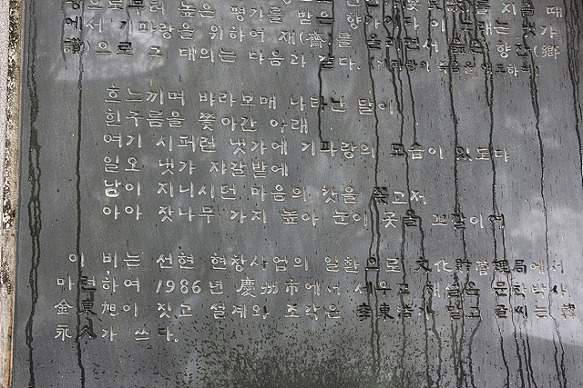 부터 높은 평가를 받은 향가이다 이 노래는 것가 지을 때
에서 기파랑을 위하여 재(齋)를 올리면서 읊은 향찬(鄕
讚)으로 그 대의는 다음과 같다.
흐느끼며 바라보매 나타난 달이
흰구름을 쫓아간 아래
여기 시퍼런 냇가에 기파랑의 모습이 있도다
일오 냇가 자갈밭에
남이 지니시던 마음의 갓을 쫓고저
아아 잣나무 가지 높아 눈이 못올 꼬갈이여
이 비는 선현 현창사업의 일환으로 文化財管理局에서
마련하여 1986년 慶州市에서 세우고 해설은 문학박사
金東旭이 짓고 설계와 조각은 맡고 글씨는 韓
永久가 쓰다.